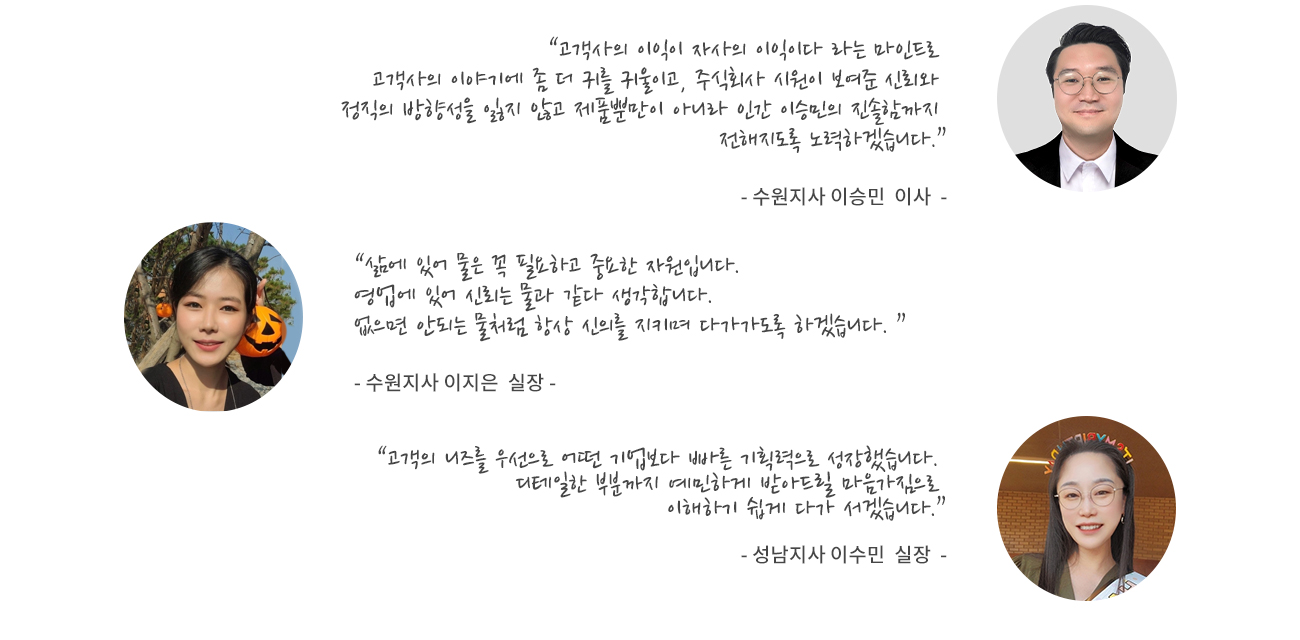 “고객사의 이익이 자사의 이익이다 라는 마인드로
고객사의 이야기에 좀 더 귀를 귀울이고, 주식회사 시원이 보여준 신뢰와
정직의 방향성을 잃지 않고 제품뿐만이 아니라 인간 이승민의 진솔함까지
전해지도록 노력하겠습니다.”
- 수원지사 이승민 이사 -
“삶에 있어 물은 꼭 필요하고 중요한 자원입니다.
영업에 있어 신뢰는 물과 같다 생각합니다.
없으면 안되는 물처럼 항상 신의를 지키며 다가가도록 하겠습니다. ”
- 수원지사 이지은 실장 -
“고객의 니즈를 우선으로 어떤 기업보다 빠른 기획력으로 성장했습니다.
디테일한 부분까지 예민하게 받아드릴 마음가짐으로
이해하기 쉽게 다가 서겠습니다.”
- 성남지사 이수민 실장 -